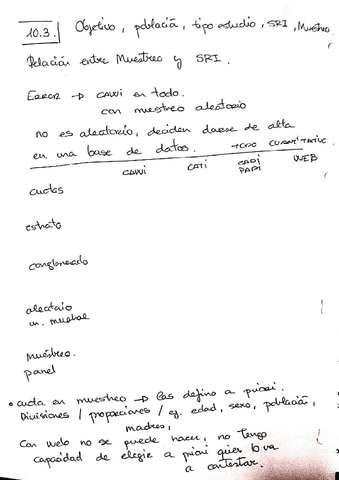 10.3. Objetivo, población, tipo estudio, SRI, Muestreo
Relación entre Muestreo y SRI.
ERROR → CAWI en todo.
con muestreo aleatorio
no es aleatorio, deciden darse de alta
en una base de datos. → TODO CUANTITATIVO
CAWI CATI CAPI PAPI WEB
cuotas
estrato
conglomerado
aleatorio
muestreo.
panel
• cuota en muestreo → las defino a priori.
Divisiones / proporciones / ej. edad, sexo, población,
madres,
Con web no se puede hacer, no tengo
capacidad de elegir a priori quien lo va
a contestar.